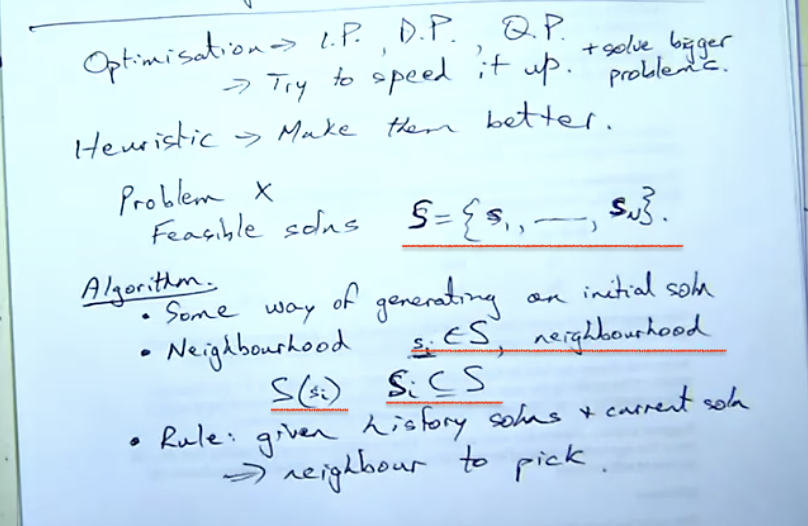 Optimisation → L.P., D.P., Q.P. + solve bigger problems.
→ Try to speed it up.
Heuristic → Make them better.
Problem X
Feasible solns S = {s₁, —, s_N}.
Algorithm.
• Some way of generating an initial soln
• Neighbourhood s_i ∈ S, neighbourhood
S(s_i) S_i ⊆ S
• Rule: given history solns + current soln
→ neighbour to pick.